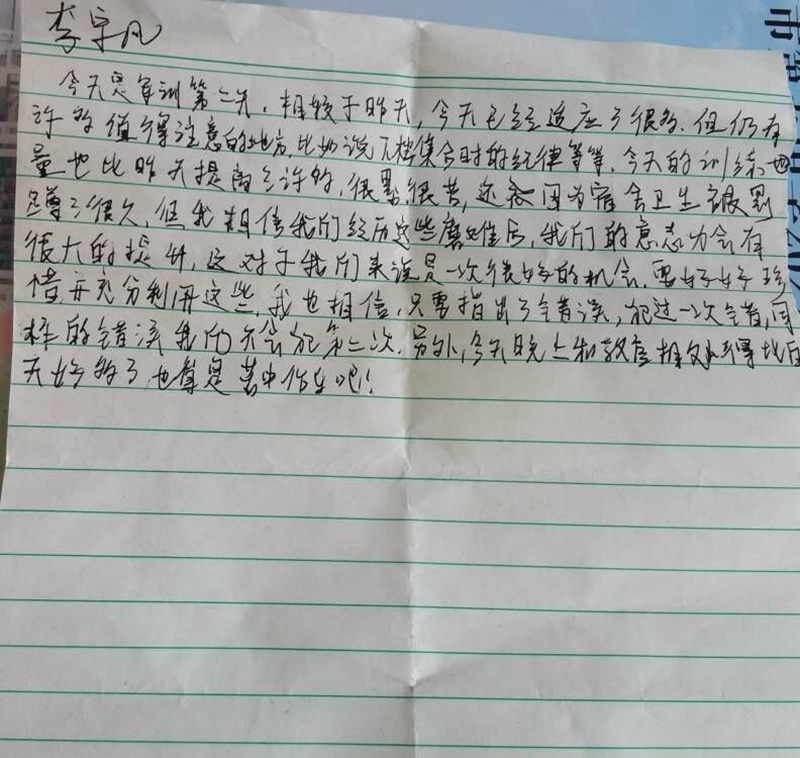 李宇凡
今天是军训第二天，相较于昨天，今天已经适应了很多，但仍有
许多值得注意的地方，比如说下楼集合时的纪律等等，今天的训练
量也比昨天提高了许多，很累，很苦，还因为宿舍卫生被罚
蹲了很久，但我相信我们经历这些磨难后，我们的意志力会有
很大的提升，这对于我们来说是一次很好的机会，要好好珍
惜并充分利用这些，我也相信，只要指出了错误，犯过一次错，同
样的错误我们不会犯第二次，另外，今天晚上和教官相处得比白
天好多了，也算是苦中作乐吧！
市